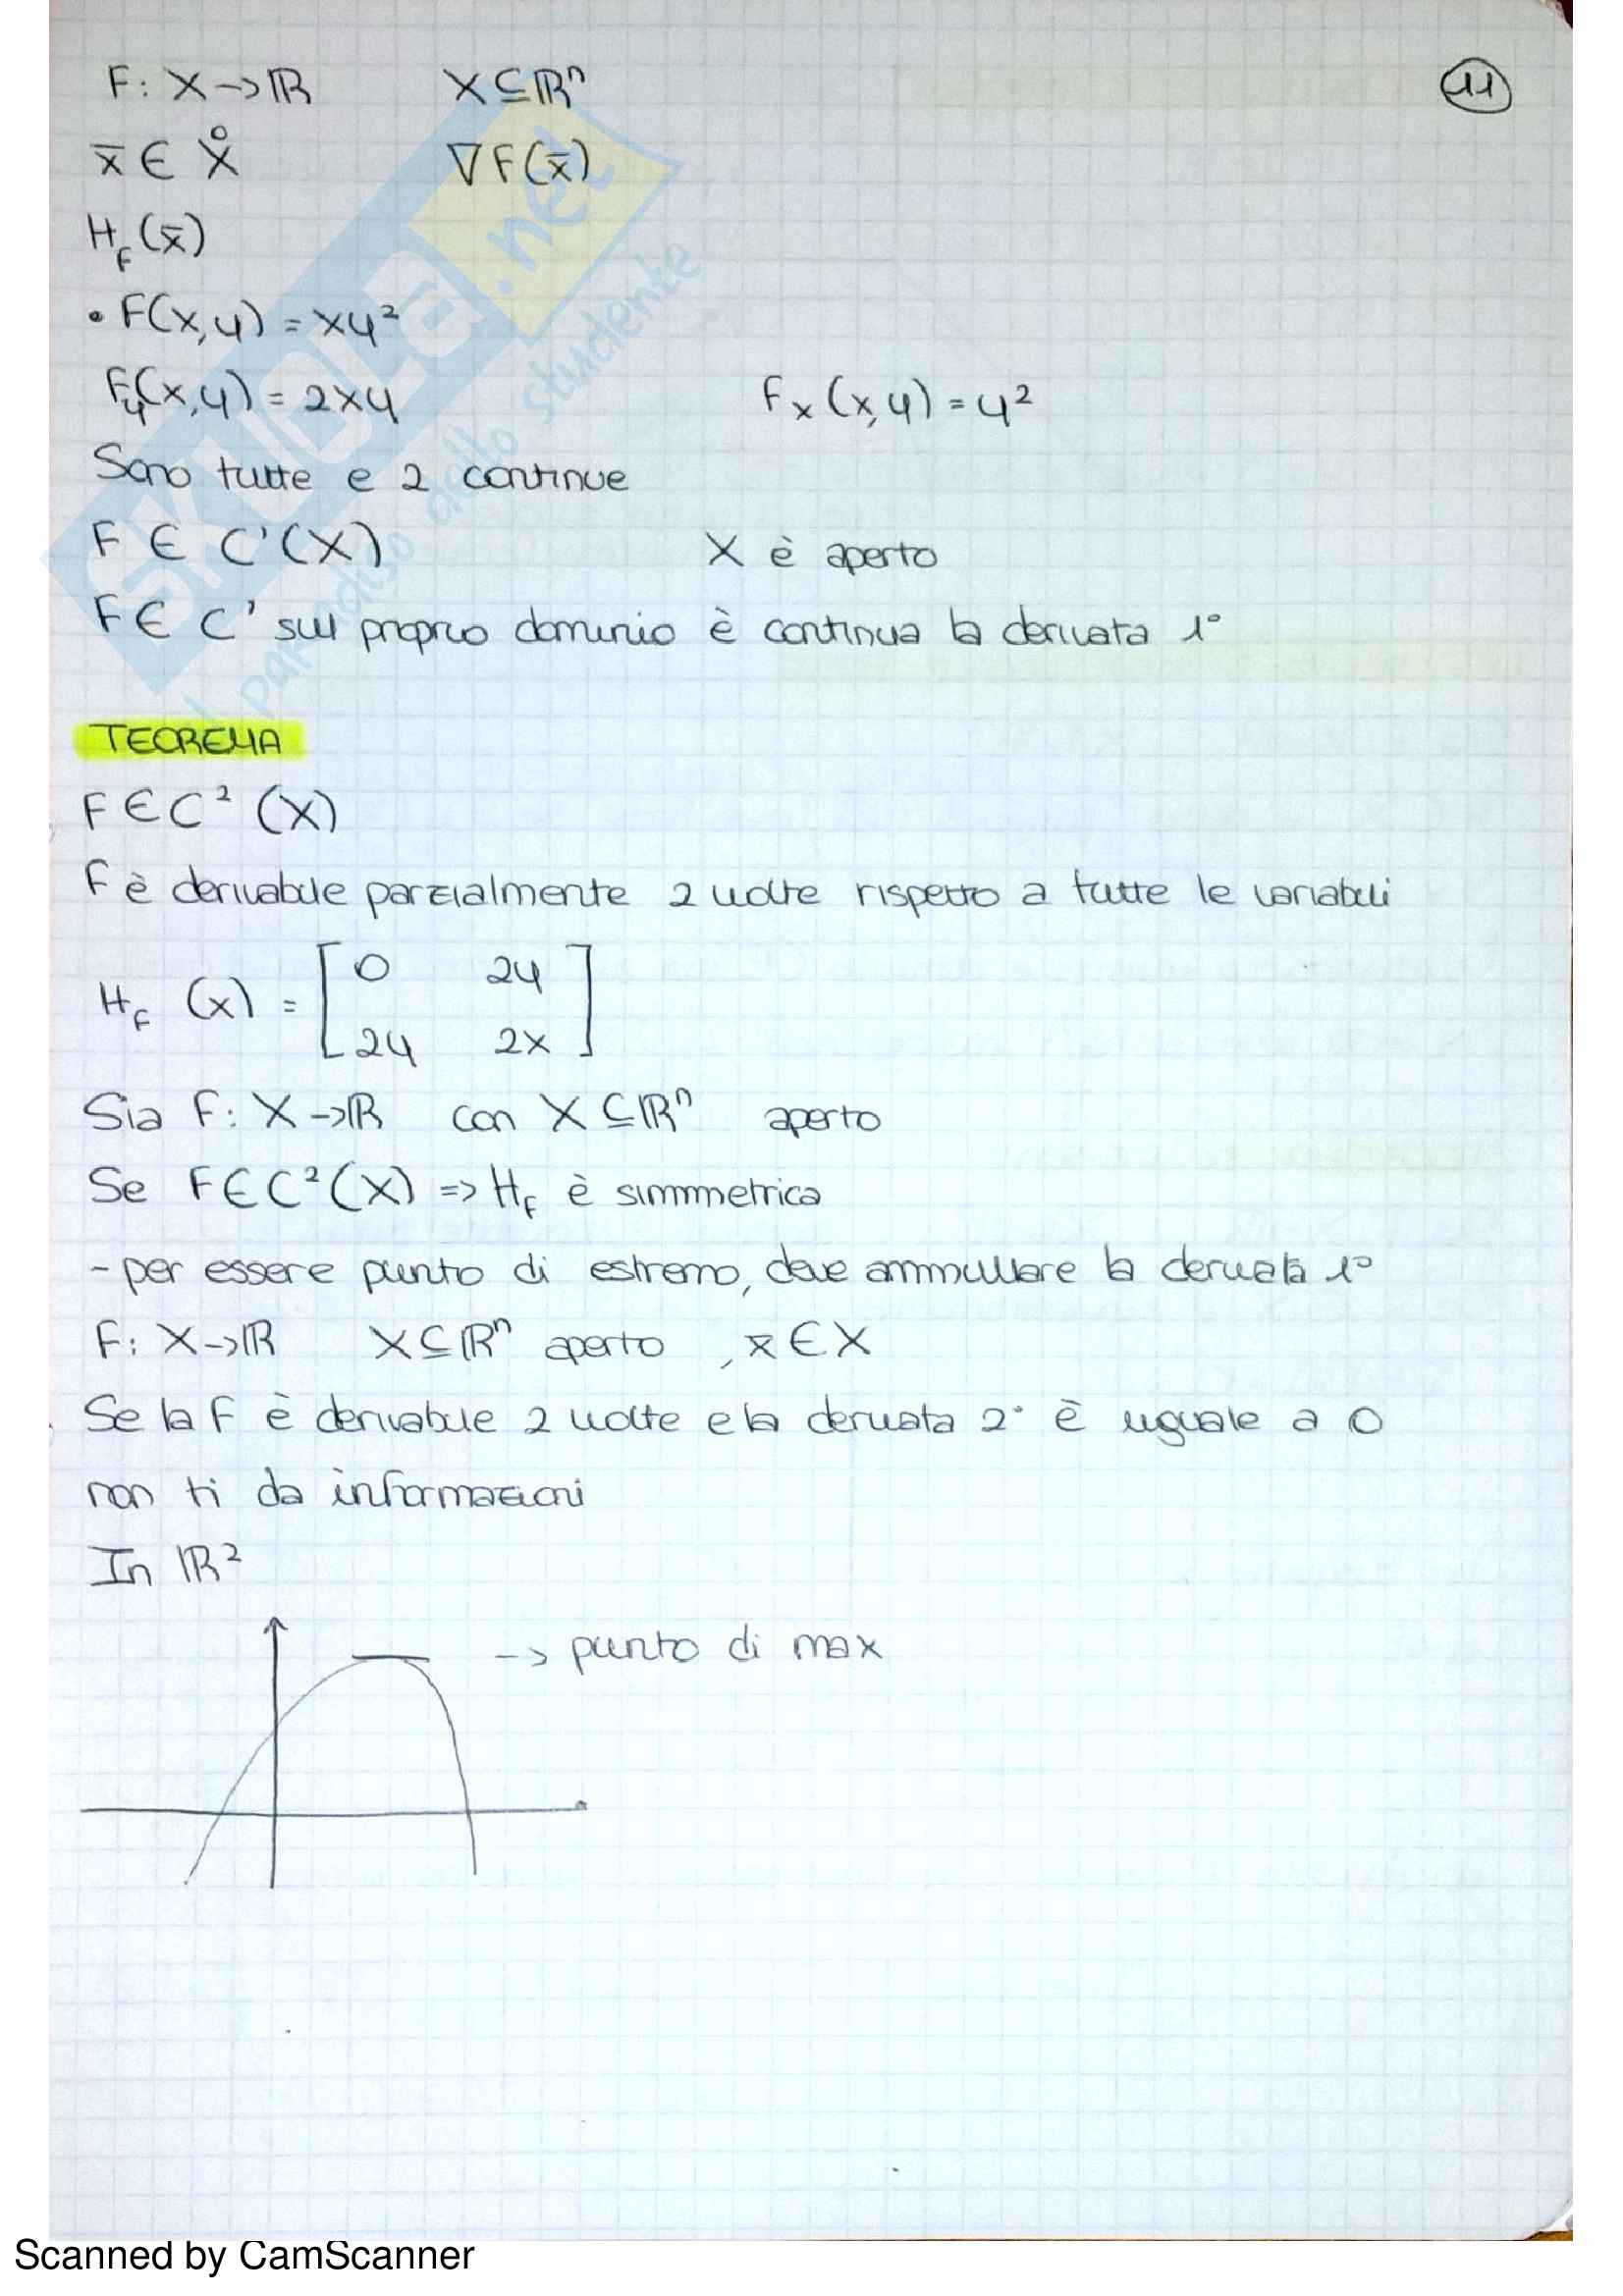 F: X → ℝ X ⊆ ℝⁿ 11
x̄ ∈ X̊ ∇F(x̄)
H_F (x̄)
• F(x,y) = xy²
F_y(x,y) = 2xy F_x (x,y) = y²
Sono tutte e 2 continue
F ∈ C'(X) X è aperto
F ∈ C' sul proprio dominio è continua la derivata 1°
TEOREMA
F ∈ C² (X)
F è derivabile parzialmente 2 volte rispetto a tutte le variabili
H_F (x) = [ 0 2y
2y 2x ]
Sia F: X → ℝ con X ⊆ ℝⁿ aperto
Se F ∈ C² (X) => H_F è simmetrica
- per essere punto di estremo, deve annullare la derivata 1°
F: X → ℝ X ⊆ ℝⁿ aperto , x̄ ∈ X
Se la F è derivabile 2 volte e la derivata 2° è uguale a 0
non ti da informazioni
In ℝ²
→ punto di max
SKUOLA.net
il paradiso dello studente
Scanned by CamScanner